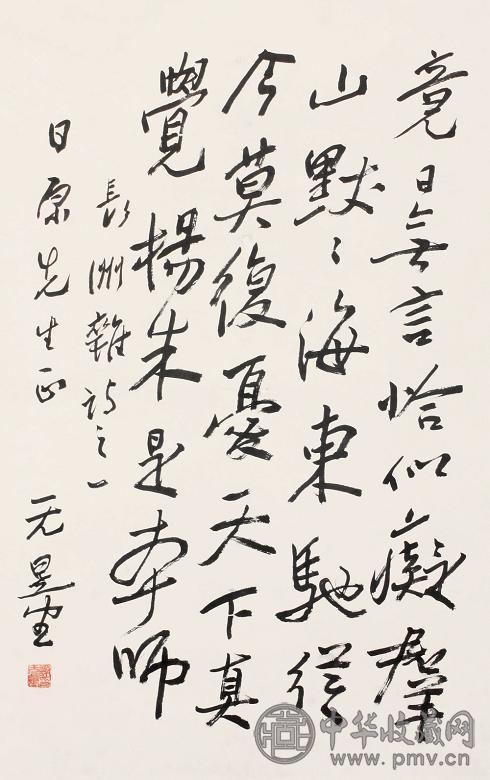 竟日無言恰似癡羣
山默〻海東馳從
今莫復憂天下真
覺楊朱是本師
長洲雜詩之一
日原先生正
中华收藏网
www.pmv.cn